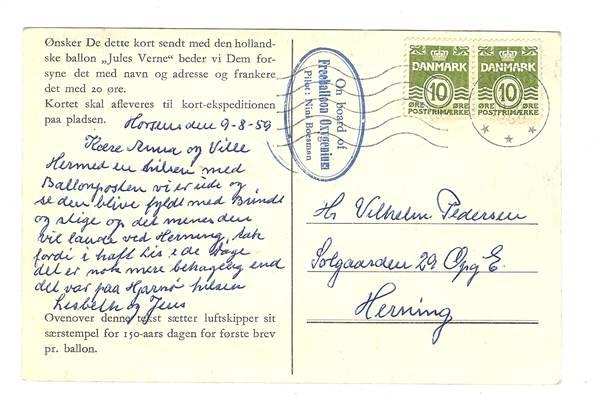 Ønsker De dette kort sendt med den holland-
ske ballon „Jules Verne” beder vi Dem for-
syne det med navn og adresse og frankere
det med 20 øre.
Kortet skal afleveres til kort-ekspeditionen
paa pladsen.
Horsens den 9-8-59
Kære Anna og Ville
Hermed en hilsen med
Ballonposten vi er ude og
se den blive fyldt med Brindt
og stige op det menes den
vil lande ved Herning, tak
fordi i haft Lis i de dage
det er nok mere behagelig end
det var paa Hjarnø hilsen
Lisbeth og Jens
Ovenover denne tekst sætter luftskipper sit
særstempel for 150-aars dagen for første brev
pr. ballon.
On board of
Freeballoon Oxygenius
Pilot: Nini Boesman
DANMARK
10
ØRE ØRE
POSTFRIMÆRKE
DANMARK
10
ØRE ØRE
POSTFRIMÆRKE
Hr Vilhelm Pedersen
Solgaarden 29 Opg E.
Herning